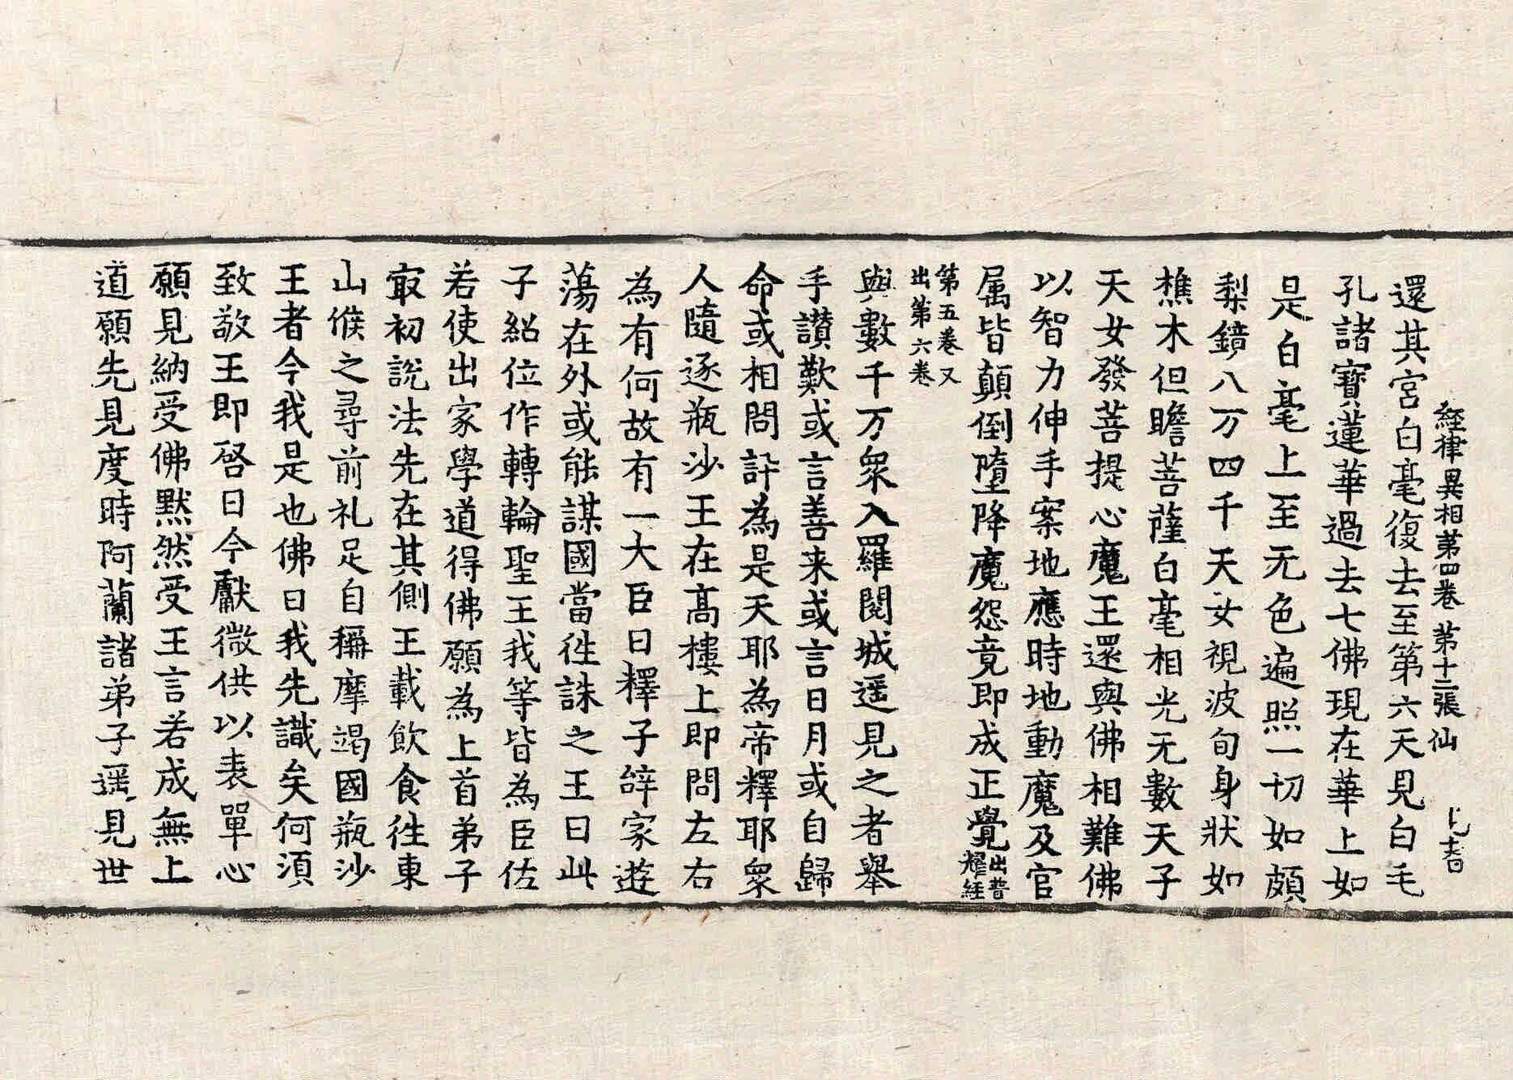 經律異相第四卷 第十二張 仙
還其宮白毫復去至第六天見白毛
孔諸寶蓮華過去七佛現在華上如
是白毫上至无色遍照一切如頗
梨鏡八万四千天女視波旬身狀如
樵木但瞻菩薩白毫相光无數天子
天女發菩提心魔王還與佛相難佛
以智力伸手案地應時地動魔及官
属皆顛倒墮降魔怨竟即成正覺出普耀經
第五卷又
出第六卷
與數千万衆入羅閱城遥見之者舉
手讃歎或言善来或言日月或自歸
命或相問訐為是天耶為帝釋耶衆
人隨逐瓶沙王在高樓上即問左右
為有何故有一大臣曰釋子辝家遊
蕩在外或能謀國當徃誅之王曰此
子紹位作轉輪聖王我等皆為臣佐
若使出家學道得佛願為上首弟子
㝡初說法先在其側王載飲食徃東
山候之尋前礼足自稱摩竭國瓶沙
王者今我是也佛曰我先識矣何須
致敬王即啓曰今獻微供以表單心
願見納受佛默然受王言若成無上
道願先見度時阿蘭諸弟子遥見世